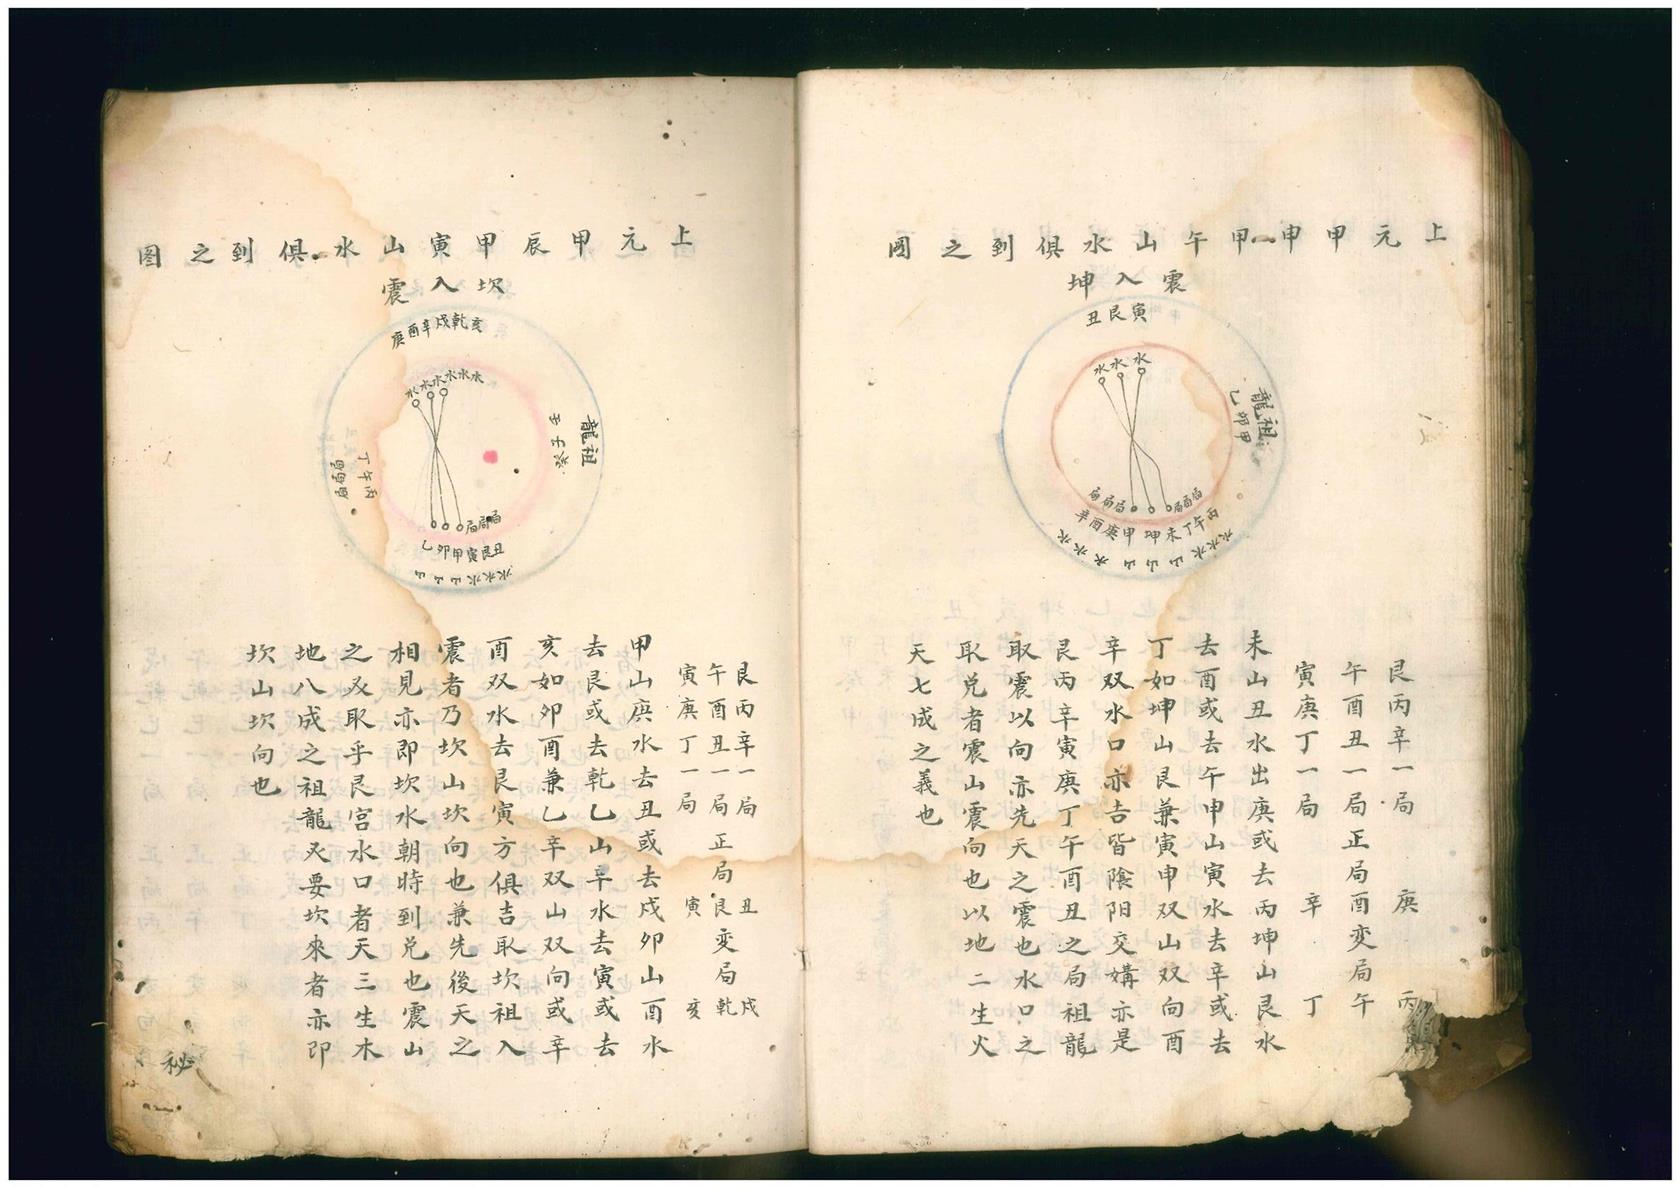 上元甲申甲午山水俱到之圖
震入坤
丑艮寅
水水水
祖龍
乙卯甲
局局局 局局局
辛酉庚申坤未丁午丙
水水水山山山水水水
艮丙辛一局 庚 丙
午酉丑一局正局酉変局午
寅庚丁一局 辛 丁
未山丑水出庚或去丙坤山艮水
去酉或去午申山寅水去辛或去
丁如坤山艮兼寅申双山双向酉
辛双水口亦吉皆陰阳交媾亦是
艮丙辛寅庚丁午酉丑之局祖龍
取震以向亦先天之震也水口之
取兌者震山震向也以地二生火
天七成之義也
上元甲辰甲寅山水俱到之图
坎入震
庚酉辛戌乾亥
水水水水水水
祖龍
壬子癸
丁午丙
局局局
局局局
乙卯甲寅艮丑
山山山水水水
艮丙辛一局 丑 戌
午酉丑一局正局艮変局乾
寅庚丁一局 寅 亥
甲山庚水去丑或去戌卯山酉水
去艮或去乾乙山辛水去寅或去
亥如卯酉兼乙辛双山双向或辛
酉双水去艮寅方俱吉取坎祖入
震者乃坎山坎向也兼先後天之
相見亦即坎水朝時到兌也震山
之又取乎艮宮水口者天三生木
地八成之祖龍又要坎來者亦即
坎山坎向也
秘